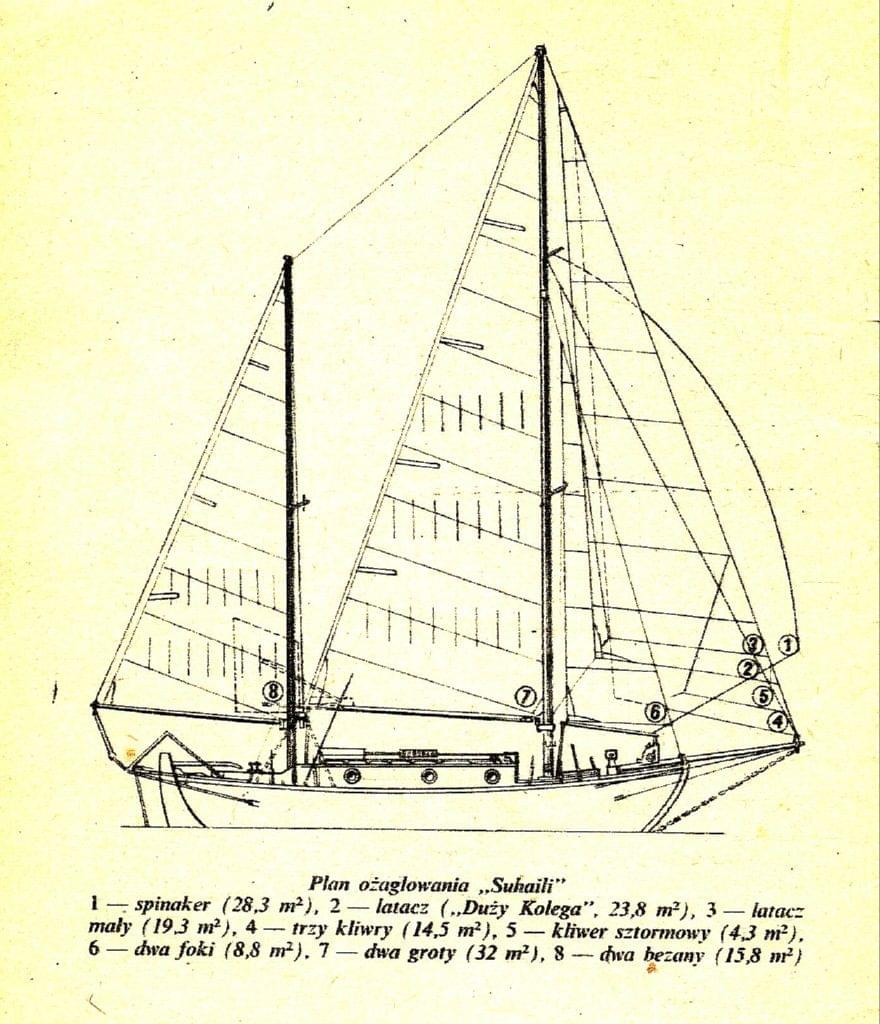 3 1
2
5
8 7 6 4
Plan ożaglowania „Suhaili”
1 — spinaker (28,3 m²), 2 — latacz („Duży Kolega”, 23,8 m²), 3 — latacz
mały (19,3 m²), 4 — trzy kliwry (14,5 m²), 5 — kliwer sztormowy (4,3 m²),
6 — dwa foki (8,8 m²), 7 — dwa groty (32 m²), 8 — dwa bezany (15,8 m²)